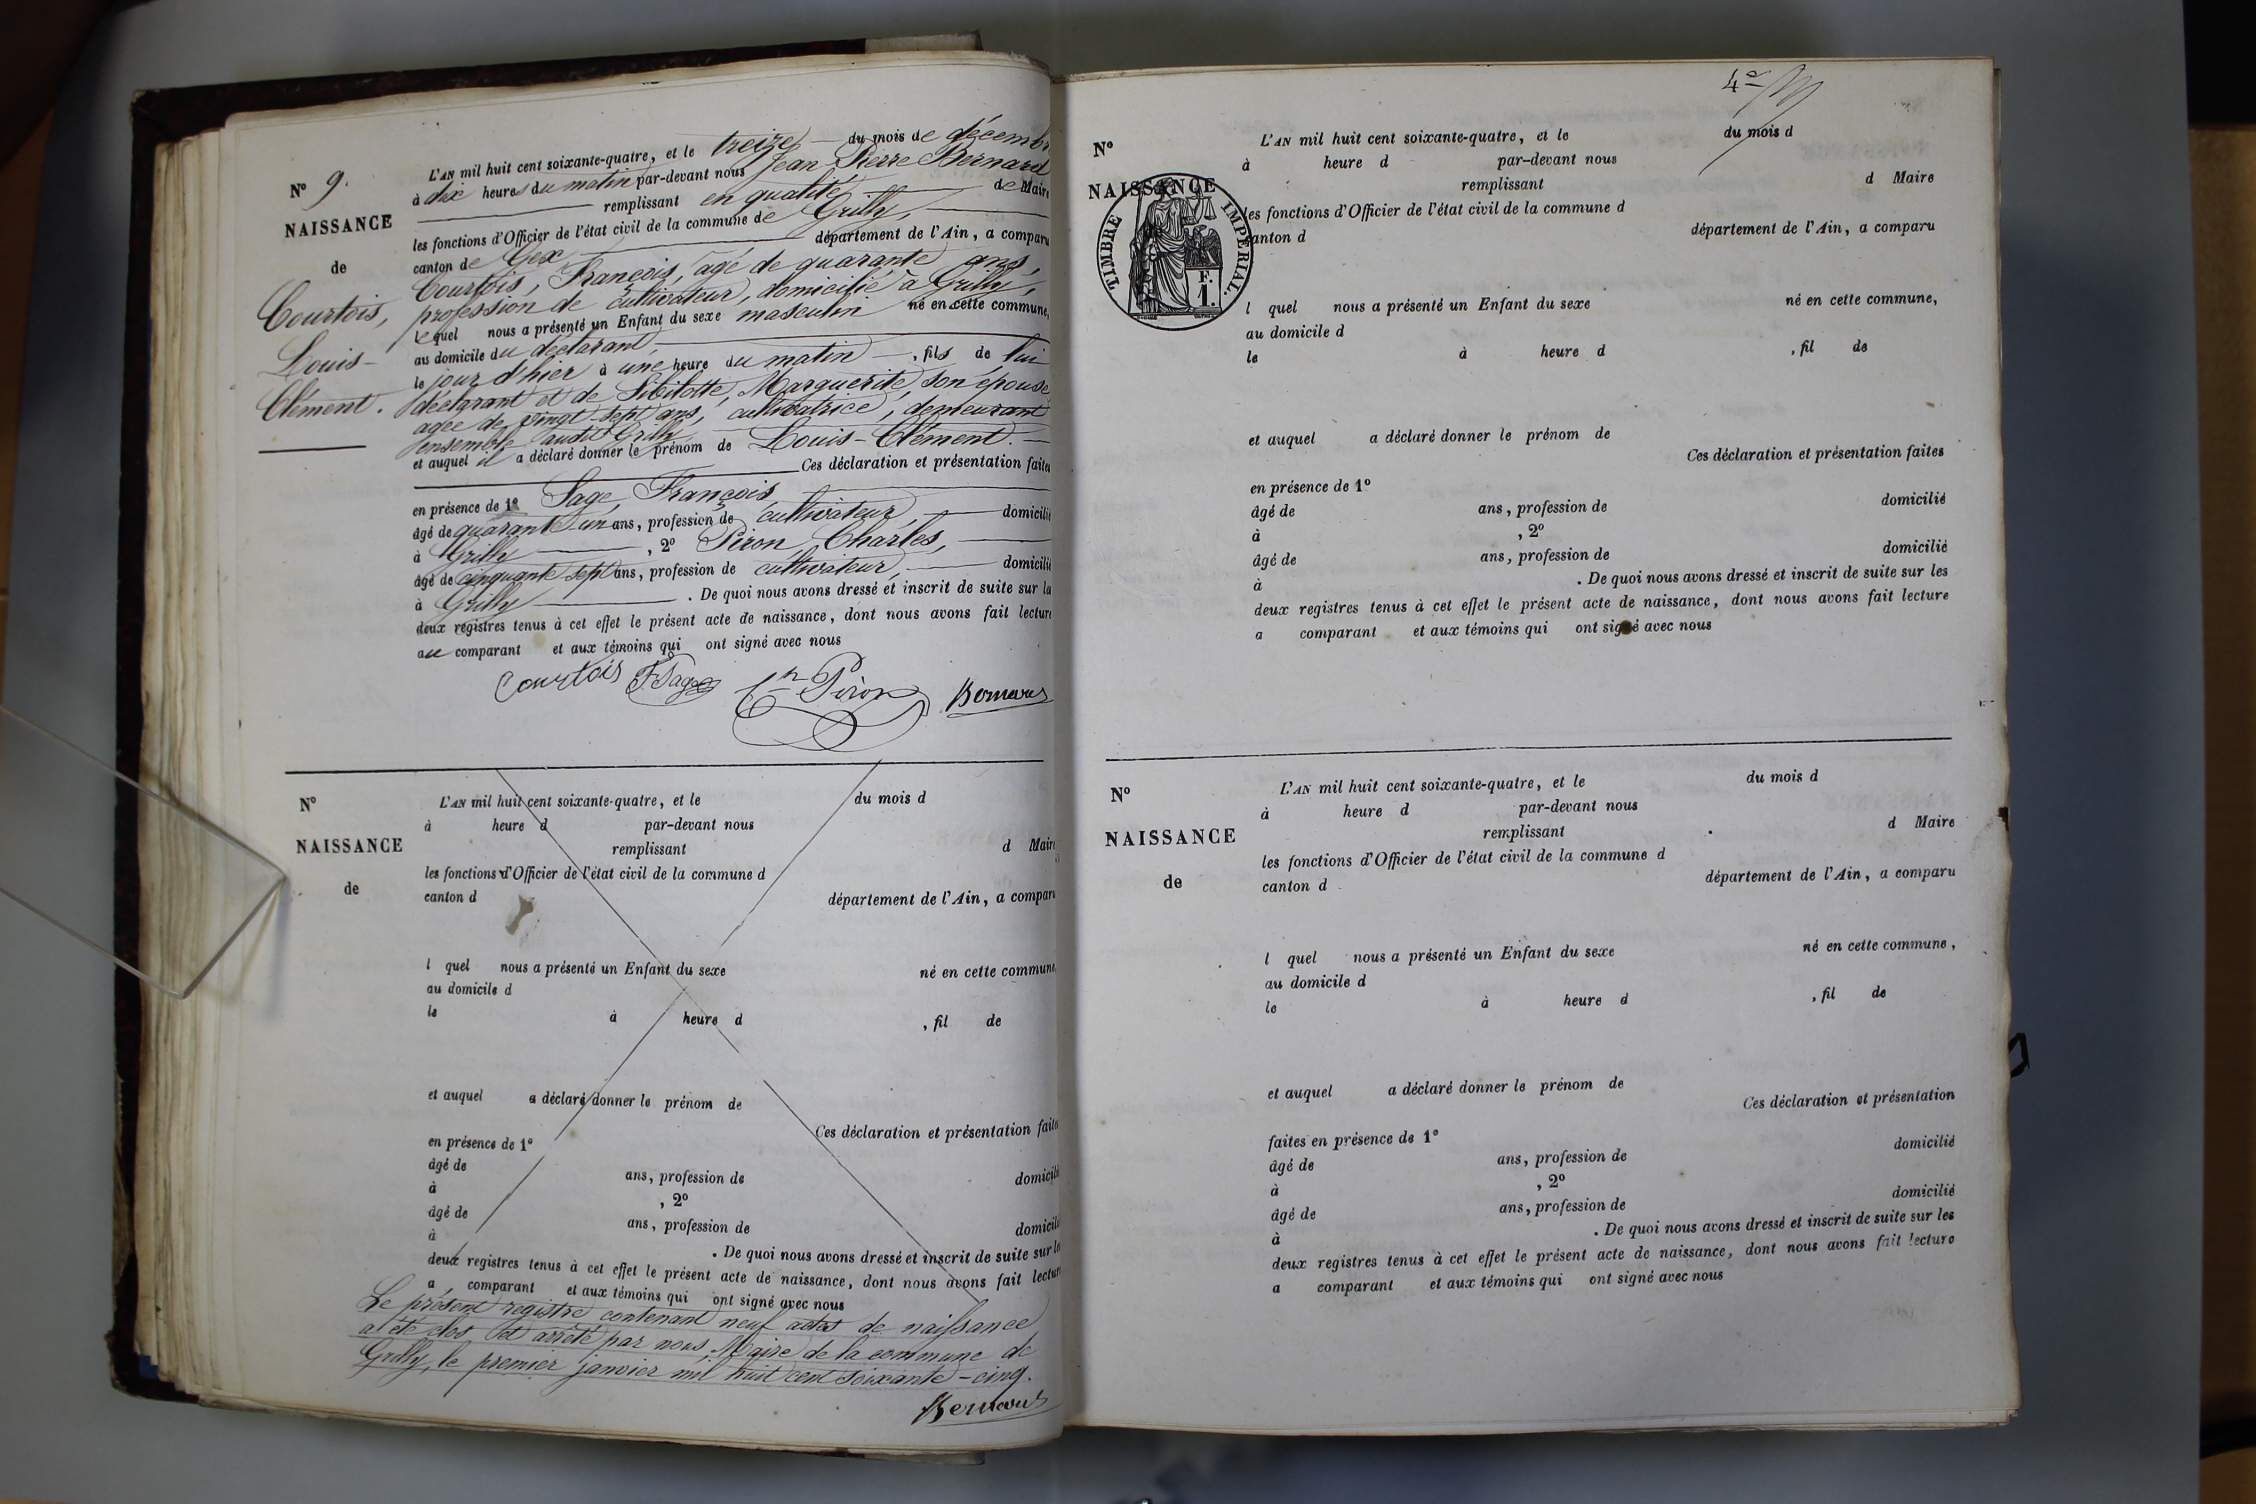 N° 9.
NAISSANCE
de
Courtois,
Louis-
Clément.
L'AN mil huit cent soixante-quatre, et le treize du mois de décembr
à dix heures du matin par-devant nous Jean Pierre Bernard
remplissant en qualité de Maire
les fonctions d'Officier de l'état civil de la commune de Grilly,
canton de Gex département de l'Ain, a comparu
Courtois, François, âgé de quarante ans,
profession de cultivateur, domicilié à Grilly,
lequel nous a présenté un Enfant du sexe masculin né en cette commune,
au domicile du déclarant
le jour d'hier à une heure du matin, fils de lui
déclarant et de Sibilotte, Marguerite, son épouse
agée de vingt sept ans, cultivatrice, demeurant
ensemble audit Grilly
et auquel il a déclaré donner le prénom de Louis-Clément.
Ces déclaration et présentation faites
en présence de 1° Sage, François
âgé de quarant'un ans, profession de cultivateur, domicilié
à Grilly, 2° Piron, Charles,
âgé de cinquante sept ans, profession de cultivateur, domicilié
à Grilly. De quoi nous avons dressé et inscrit de suite sur les
deux registres tenus à cet effet le présent acte de naissance, dont nous avons fait lecture
au comparant et aux témoins qui ont signé avec nous
Courtois F Sage Ch Piron Bernard
N°
NAISSANCE
de
L'AN mil huit cent soixante-quatre, et le du mois d
à heure d par-devant nous
remplissant d Maire
les fonctions d'Officier de l'état civil de la commune d
canton d département de l'Ain, a comparu
l quel nous a présenté un Enfant du sexe né en cette commune,
au domicile d
le à heure d , fil de
et auquel a déclaré donner le prénom de
Ces déclaration et présentation faites
en présence de 1°
âgé de ans, profession de domicilié
à , 2°
âgé de ans, profession de domicilié
à . De quoi nous avons dressé et inscrit de suite sur les
deux registres tenus à cet effet le présent acte de naissance, dont nous avons fait lecture
a comparant et aux témoins qui ont signé avec nous
Le présent registre contenant neuf actes de naissance
a été clos et arrêté par nous, Maire de la commune de
Grilly, le premier janvier mil huit cent soixante-cinq.
Bernard
4e
N°
NAISSANCE
TIMBRE IMPÉRIAL.
F.
1.
L'AN mil huit cent soixante-quatre, et le du mois d
à heure d par-devant nous
remplissant d Maire
les fonctions d'Officier de l'état civil de la commune d
canton d département de l'Ain, a comparu
l quel nous a présenté un Enfant du sexe né en cette commune,
au domicile d
le à heure d , fil de
et auquel a déclaré donner le prénom de
Ces déclaration et présentation faites
en présence de 1°
âgé de ans, profession de domicilié
à , 2°
âgé de ans, profession de domicilié
à . De quoi nous avons dressé et inscrit de suite sur les
deux registres tenus à cet effet le présent acte de naissance, dont nous avons fait lecture
a comparant et aux témoins qui ont signé avec nous
N°
NAISSANCE
de
L'AN mil huit cent soixante-quatre, et le du mois d
à heure d par-devant nous
remplissant d Maire
les fonctions d'Officier de l'état civil de la commune d
canton d département de l'Ain, a comparu
l quel nous a présenté un Enfant du sexe né en cette commune,
au domicile d
le à heure d , fil de
et auquel a déclaré donner le prénom de
Ces déclaration et présentation
faites en présence de 1°
âgé de ans, profession de domicilié
à , 2°
âgé de ans, profession de domicilié
à . De quoi nous avons dressé et inscrit de suite sur les
deux registres tenus à cet effet le présent acte de naissance, dont nous avons fait lecture
a comparant et aux témoins qui ont signé avec nous